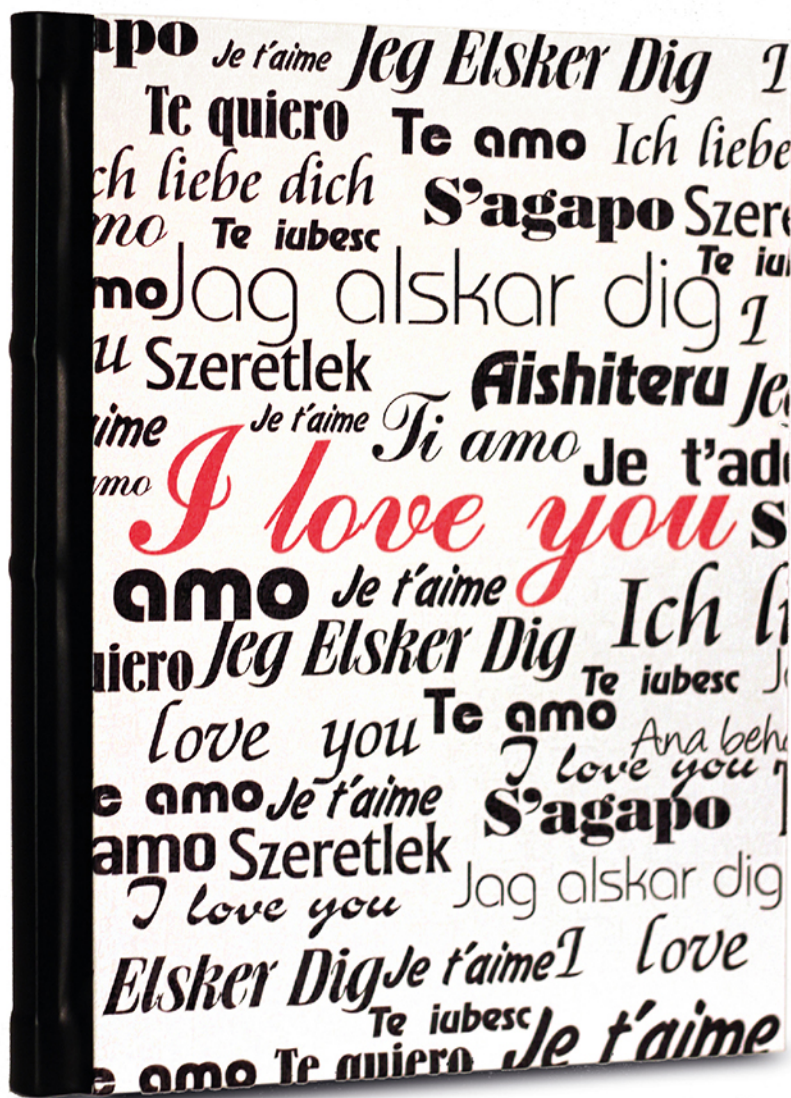 apo Je t'aime Jeg Elsker Dig I
Te quiero Te amo Ich liebe
ch liebe dich S'agapo Szere
mo Te iubesc Te iu
mo Jag alskar dig I
u Szeretlek Aishiteru Je
aime Je t'aime Ti amo Je t'ado
amo I love you S
amo Je t'aime Ich li
uiero Jeg Elsker Dig Te iubesc J
love you Te amo Ana beh
I love you
e amo Je t'aime S'agapo
amo Szeretlek Jag alskar dig
I love you
Elsker Dig Je t'aime I love
Te iubesc Je t'aime
e amo Te quiero